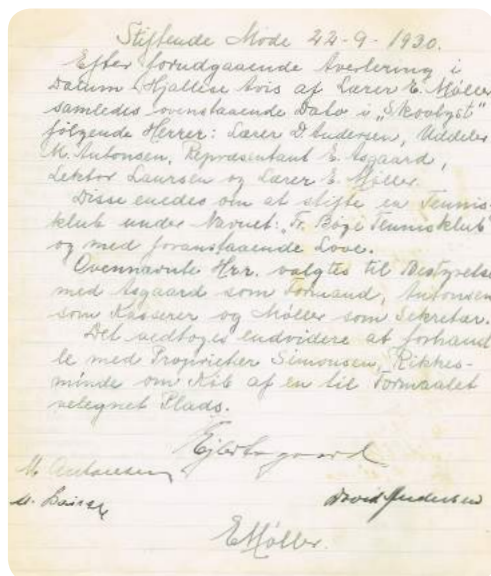 Stiftende Møde 22-9-1930.
Efter forudgaaende Avertering i
Dalum Hjallese Avis af Lærer E. Møller
samledes ovenstaaende Dato i „Skovlyst“
følgende Herrer: Lærer D. Andersen, Uddeler
M. Antonsen, Repræsentant E. Asgaard,
Lektor Laursen og Lærer E. Møller.
Disse enedes om at stifte en Tennis-
klub under Navnet: „Fr. Bøge Tennisklub“
og med foranstaaende Love.
Ovennævnte Hrr. valgtes til Bestyrelse
med Asgaard som Formand, Antonsen
som Kasserer og Møller som Sekretær.
Det vedtoges endvidere at forhand-
le med Proprietær Simonsen, Rikkes-
minde om Køb af en til Formaalet
velegnet Plads.
M. Antonsen
David Andersen
E Møller.